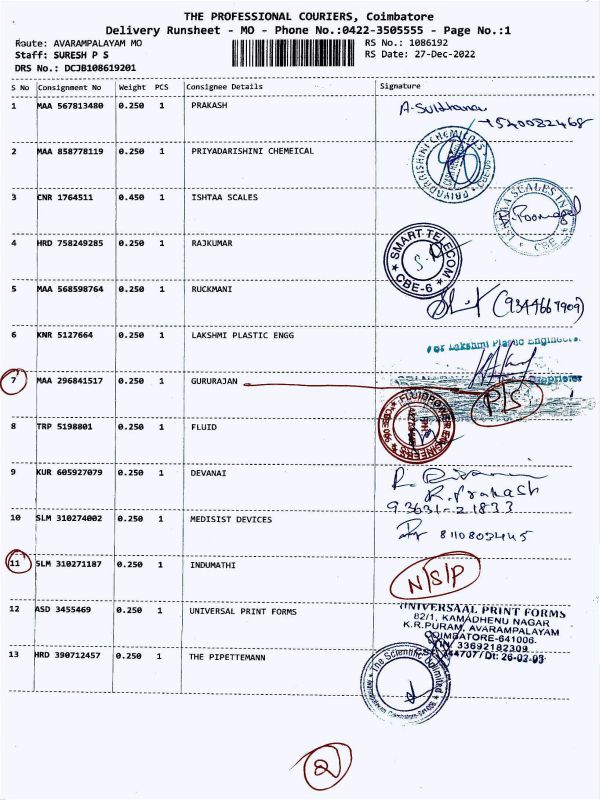 THE PROFESSIONAL COURIERS, Coimbatore
Delivery Runsheet - MO - Phone No.:0422-3505555 - Page No.:1
Route: AVARAMPALAYAM MO RS No.: 1086192
Staff: SURESH P S RS Date: 27-Dec-2022
DRS No.: DCJB108619201
S No Consignment No Weight PCS Consignee Details Signature
1 MAA 567813480 0.250 1 PRAKASH A-Sulthana
7540082468
2 MAA 858778119 0.250 1 PRIYADARISHINI CHEMEICAL PRIYADARISHINI CHEMICALS
3 CNR 1764511 0.450 1 ISHTAA SCALES ISHTAA SCALES CBE
4 HRD 758249285 0.250 1 RAJKUMAR SMART TELECOM CBE-6
5 MAA 568598764 0.250 1 RUCKMANI (9344667909)
6 KNR 5127664 0.250 1 LAKSHMI PLASTIC ENGG For Lakshmi Plastic Engineers
Proprietor
7 MAA 296841517 0.250 1 GURURAJAN P/S
8 TRP 5198801 0.250 1 FLUID
9 KUR 605927079 0.250 1 DEVANAI
R. Prakash
93631-21833
10 SLM 310274002 0.250 1 MEDISIST DEVICES
11 SLM 310271187 0.250 1 INDUMATHI N/S/P
12 ASD 3455469 0.250 1 UNIVERSAL PRINT FORMS UNIVERSAAL PRINT FORMS
82/1, KAMADHENU NAGAR
K.R.PURAM, AVARAMPALAYAM
COIMBATORE-641006.
33692182309
44707 / Dt: 26-03-93
13 HRD 390712457 0.250 1 THE PIPETTEMANN The Scientific
2